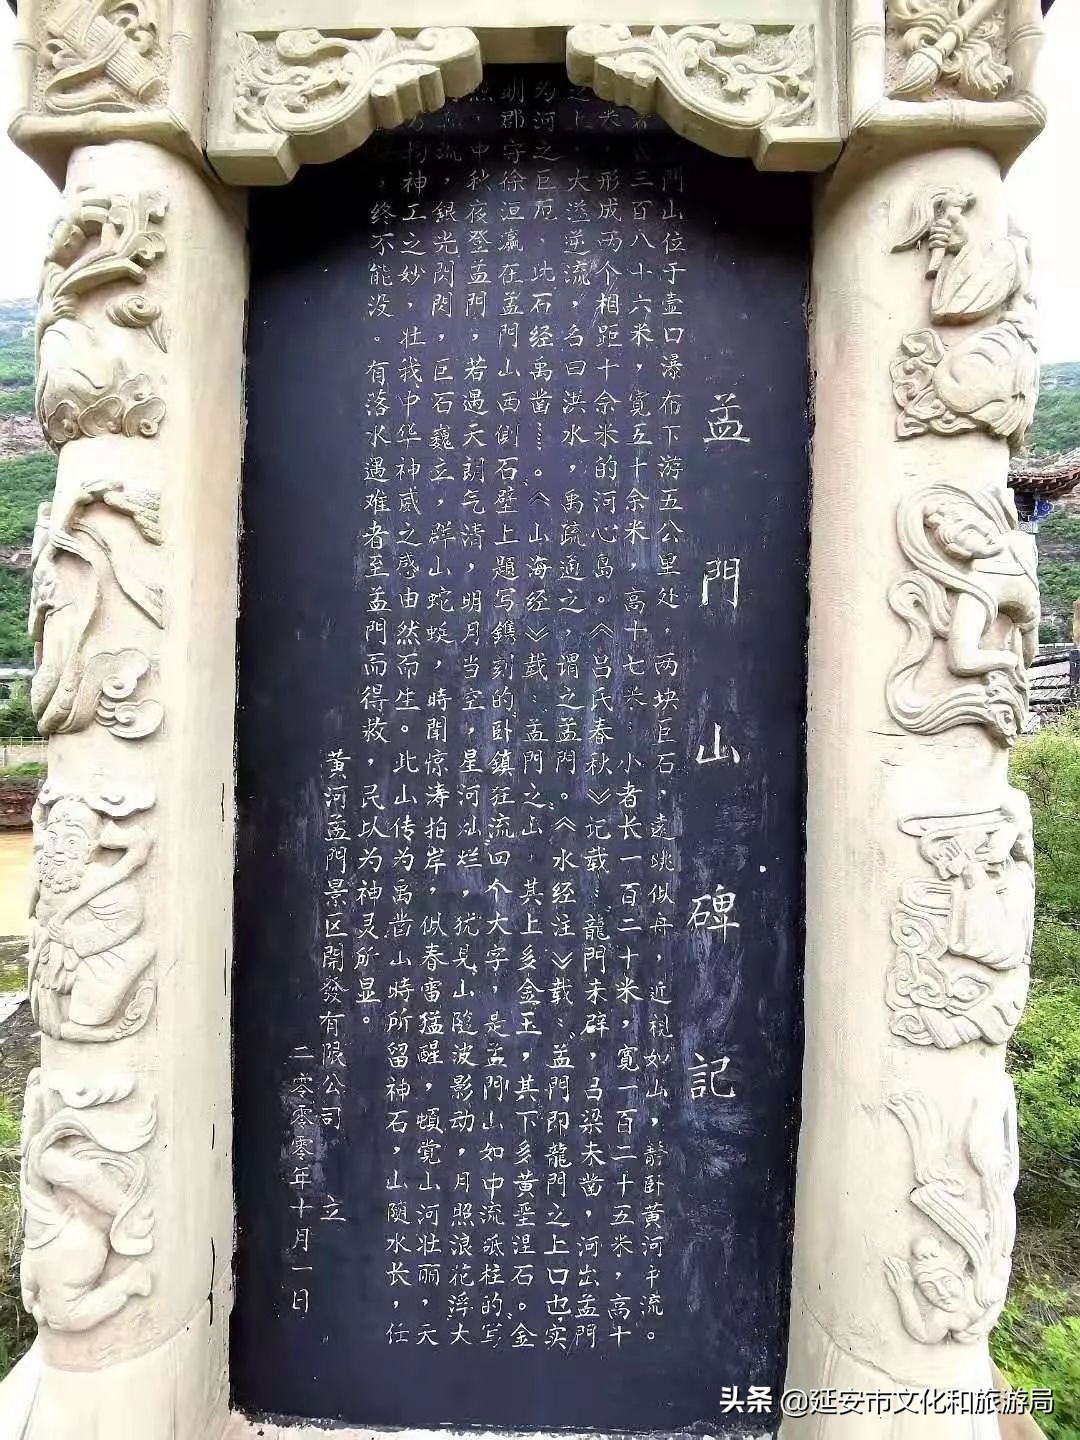 孟門山碑記
門山位于壶口瀑布下游五公里处,两块巨石,遠眺似舟,近視如山,静卧黄河中流。
长三百八十六米,寛五十余米,高十七米,小者长一百二十米,寛一百二十五米,高十
米,形成两个相距十余米的河心島。《吕氏春秋》记载:“龍門未辟,吕梁未凿,河出孟門
之上,大溢逆流,名曰洪水,禹疏通之,谓之孟門。”《水经注》载:“孟門即龍門之上口也,实
为河之巨阨,此石经禹凿……。”《山海经》载:“孟門之山,其上多金玉,其下多黄垩涅石。”金
明郡守徐洹瀛在孟門山西側石壁上题写鐫刻的“卧鎮狂流”四个大字,是孟門山如中流砥柱的写
照,中秋夜登孟門,若遇天朗气清,明月当空,星河灿烂,犹見山随波影动,月照浪花浮大
流,銀光閃閃,巨石巍立,群山蛇蜒,時聞惊涛拍岸,似春雷猛醒,頓覚山河壮丽,天
神工之妙,壮我中华神威之感由然而生。此山传为禹凿山時所留神石,山随水长,任
,终不能没。有落水遇难者至孟門而得救,民以为神灵所显。
黄河孟門景区開發有限公司 立
二零零零年十月一日
头条 @延安市文化和旅游局